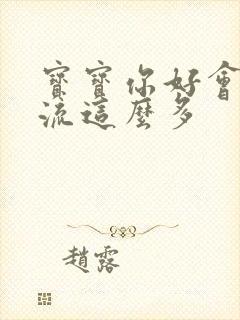 寶寶你好會
流這麼多
趙露